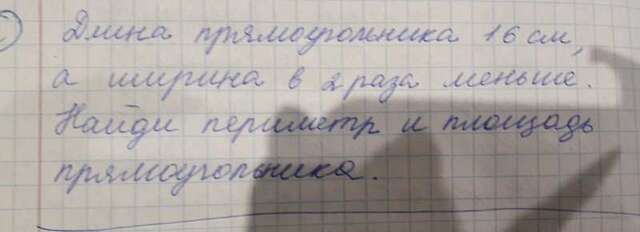 Длина прямоугольника 16 см,
а ширина в 2 раза меньше.
Найди периметр и площадь
прямоугольника.